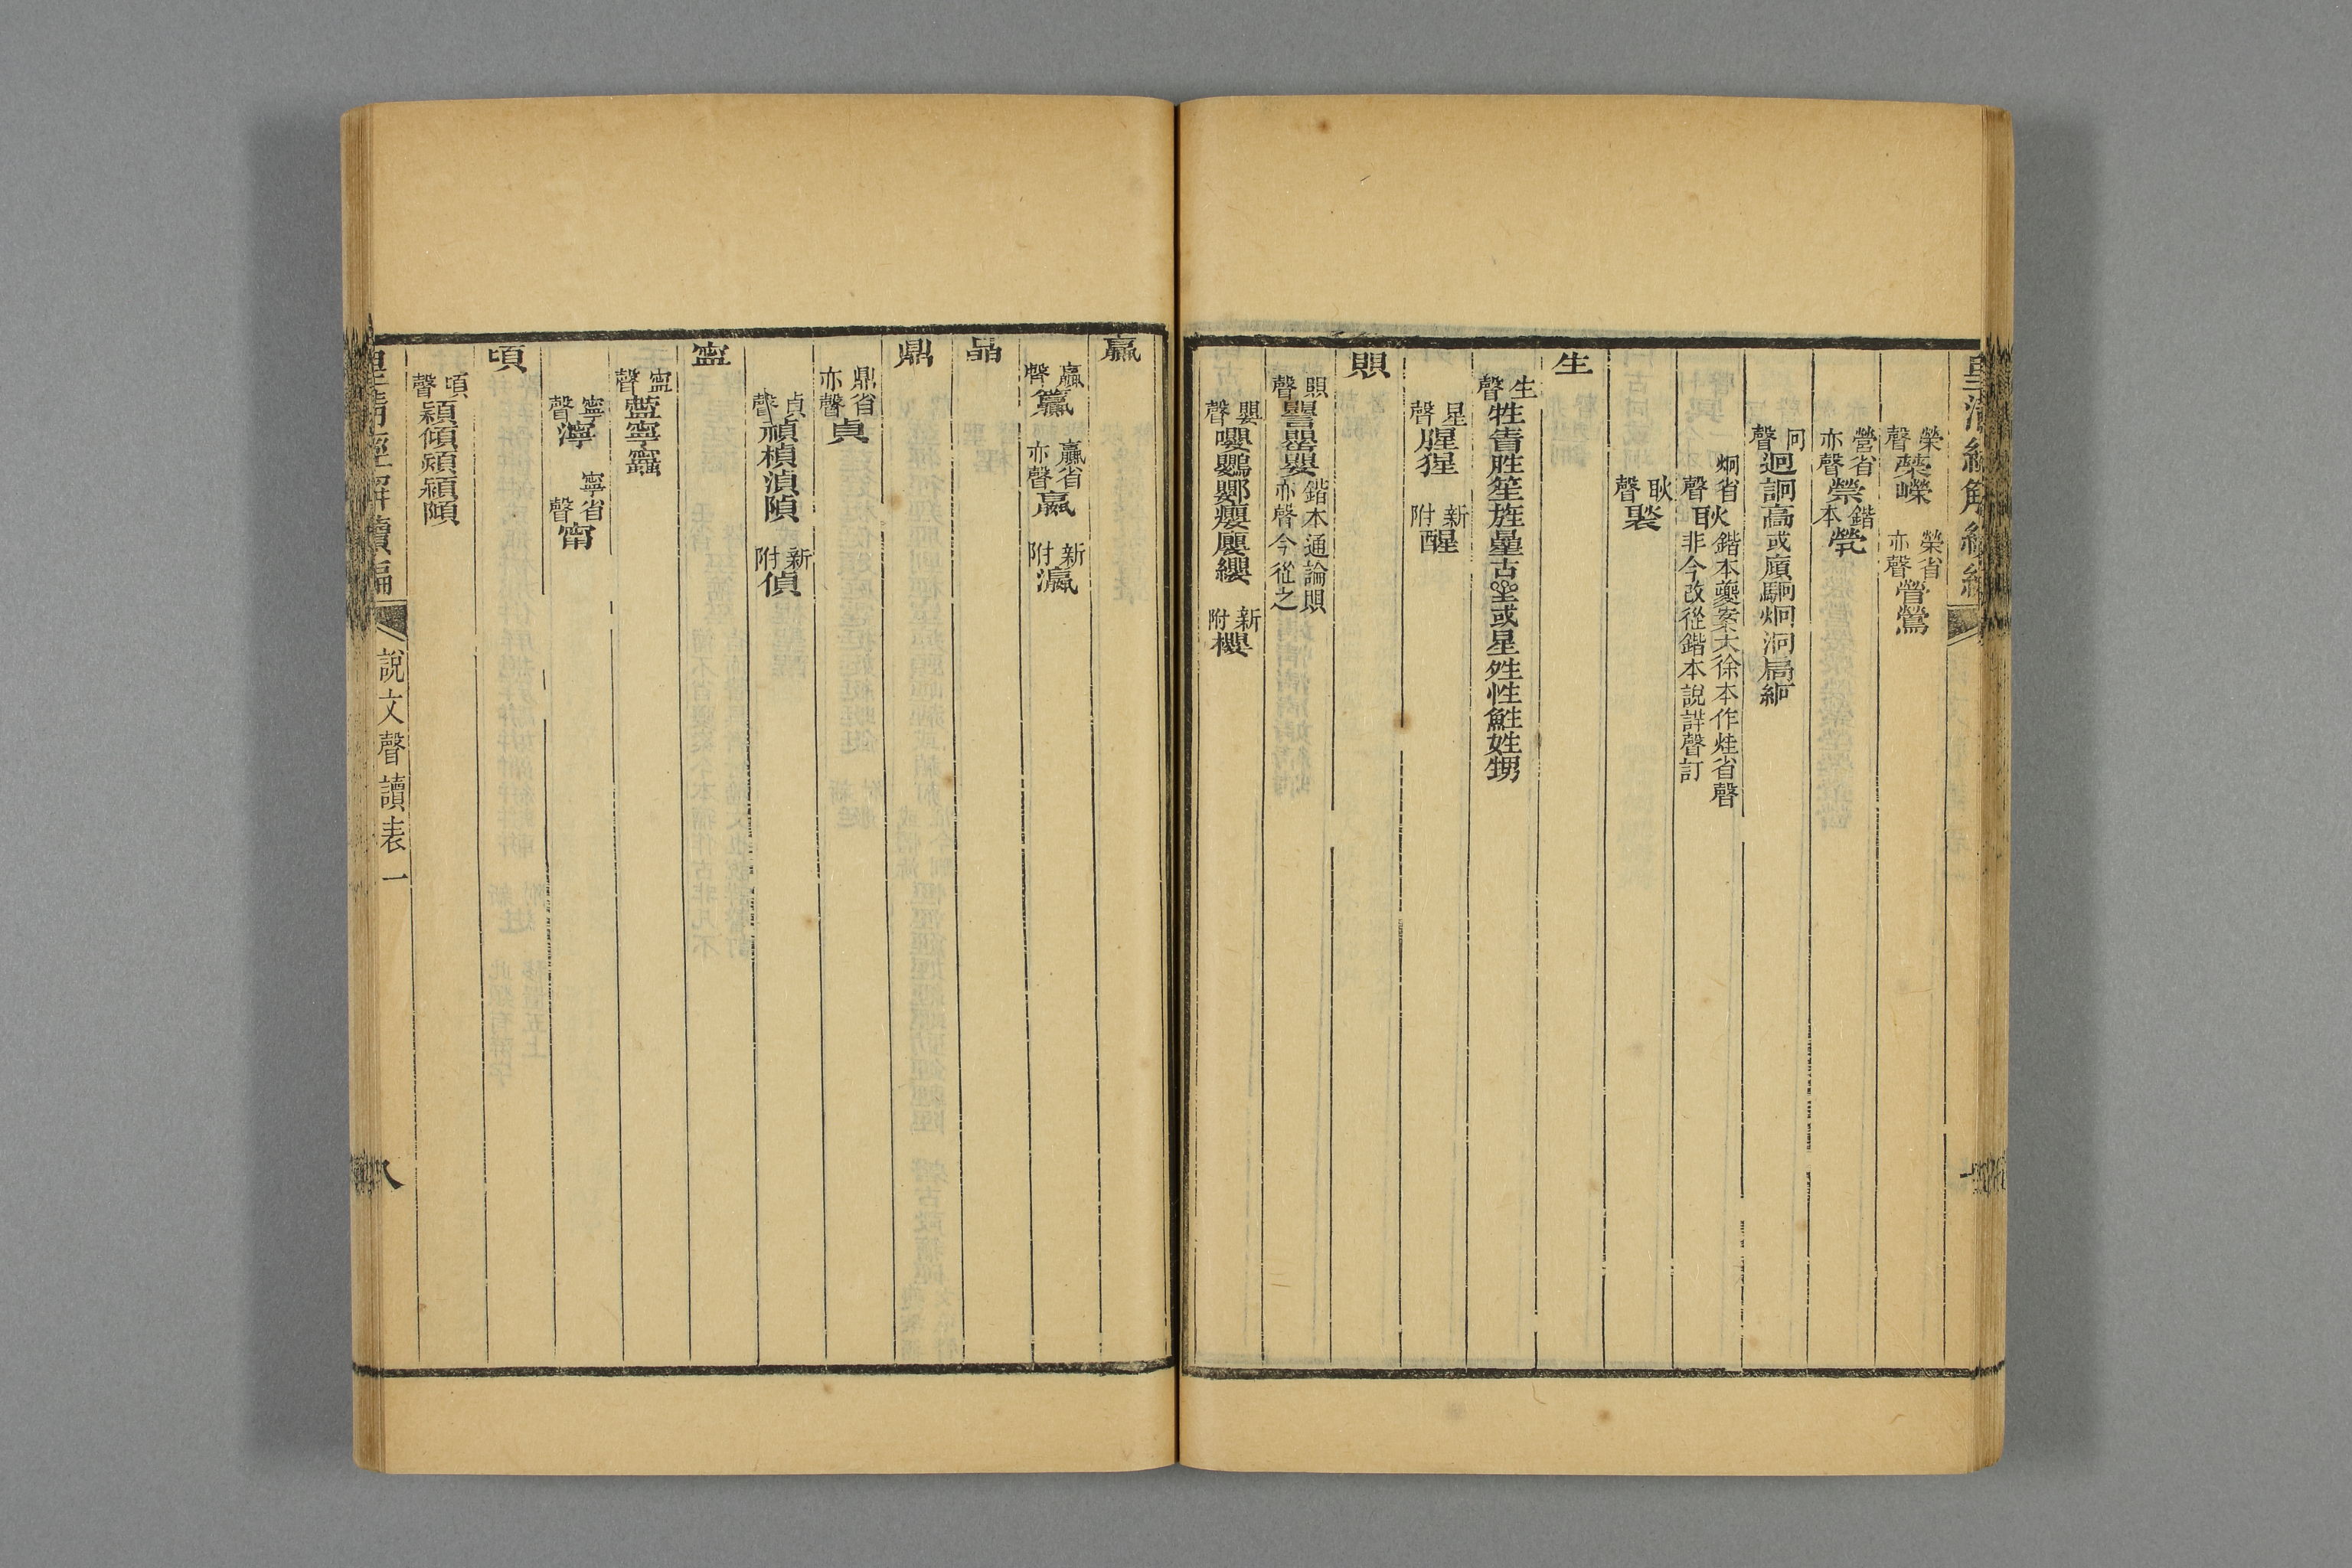 皇清經解續編
榮聲㯋嶸 榮省亦聲營鶯
營省亦聲禜鍇本甇
冋聲迥詗高或廎駉炯泂扃絅
炯省聲耿鍇本夔案大徐本作烓省聲非今改從鍇本說詳聲訂
耿聲褧
生
生聲牲眚胜笙旌曐古或星殅性鮏姓甥
星聲腥猩 新附醒
賏
賏聲譻罌嬰鍇本通論賏亦聲今從之
嬰聲嚶鸚郢癭廮纓 新附櫻
贏
贏聲籯 贏省亦聲嬴 新附瀛
晶
鼎
鼎省亦聲貞
貞聲禎楨湞隕 新附偵
寍
寍聲寧
寧聲濘 寧省聲甯
頃
頃聲穎傾潁熲
皇清經解續編
說文聲讀表一
八